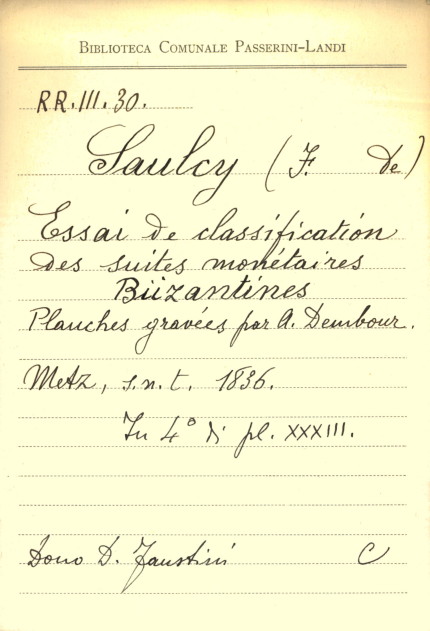 BIBLIOTECA COMUNALE PASSERINI-LANDI
RR.III.30.
Saulcy (F. De)
Essai de classification
des suites monétaires
Büzantines
Planches gravées par A. Dembour.
Metz, s.n.t. 1836.
In 4° di pl. XXXIII.
Dono D. Faustini C